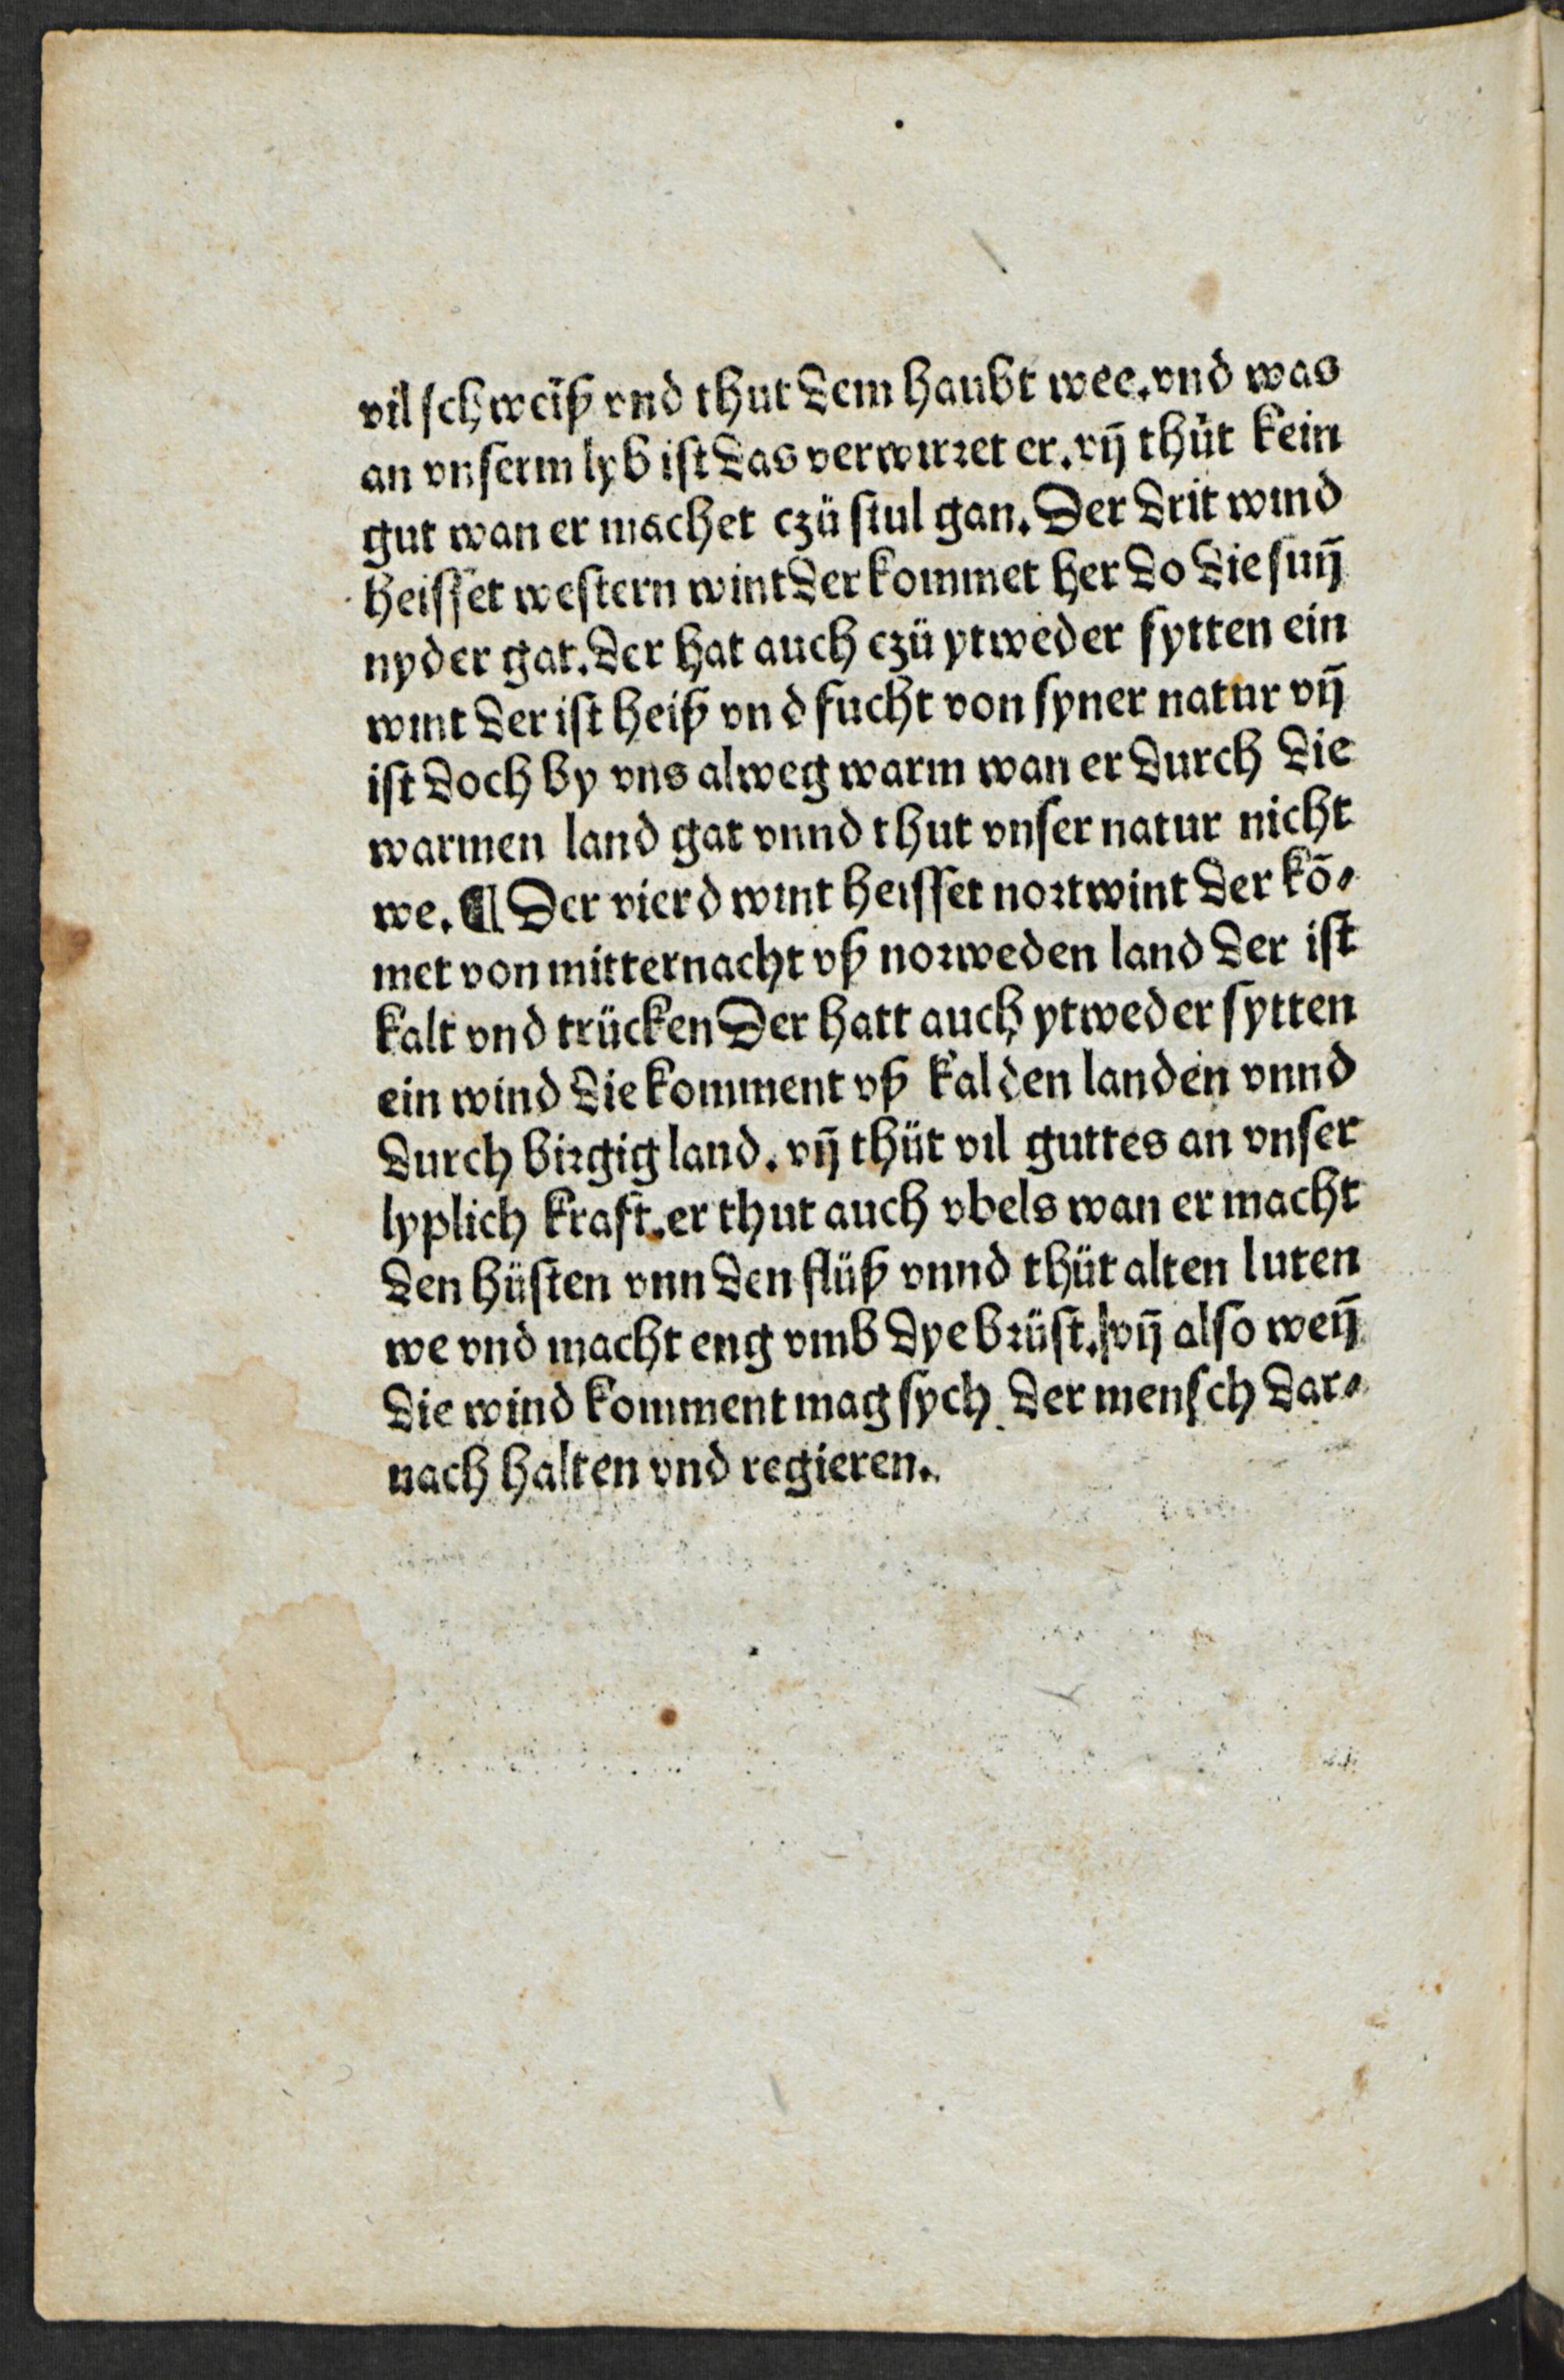 vil schweiß vnd thut dem haubt wee. vnd was
an vnserm lyb ist das verwirret er. vñ thüt kein
gut wan er machet czü stul gan. Der drit wind
heisset western wint der kommet her do die suñ
nyder gat. der hat auch czü ytweder sytten ein
wint der ist heiß vnd fucht von syner natur vñ
ist doch by vns alweg warm wan er durch die
warmen land gat vnnd thut vnser natur nicht
we. ¶ Der vierd wint heisset nortwint der kō⸗
met von mitternacht vß norweden land der ist
kalt vnd trücken Der hatt auch ytweder sytten
ein wind die komment vß kalden landen vnnd
durch birgig land. vñ thüt vil guttes an vnser
lyplich kraft. er thut auch vbels wan er macht
den hüsten vnn den flüß vnnd thüt alten luten
we vnd macht eng vmb dye brüst. vñ also weñ
die wind komment mag sych der mensch dar⸗
nach halten vnd regieren.